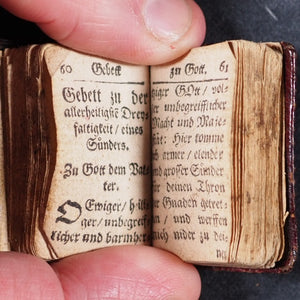 60 Gebett
Gebett zu der
allerheiligſtẽ Drey-
faltigkeit / eines
Sünders.
Zu Gott dem Vat-
ter.
O Ewiger /
ger / unbegreif-
licher und barmher-
zu Gott. 61
GOtt / vol-
ler unbegreifflicher
Macht und Maie-
ſtät: Hier komme
ich armer / elender
und groſſer Sünder
für deinen Thron
der Gnaden getret-
ten / und werffen
mich nider zu dei-